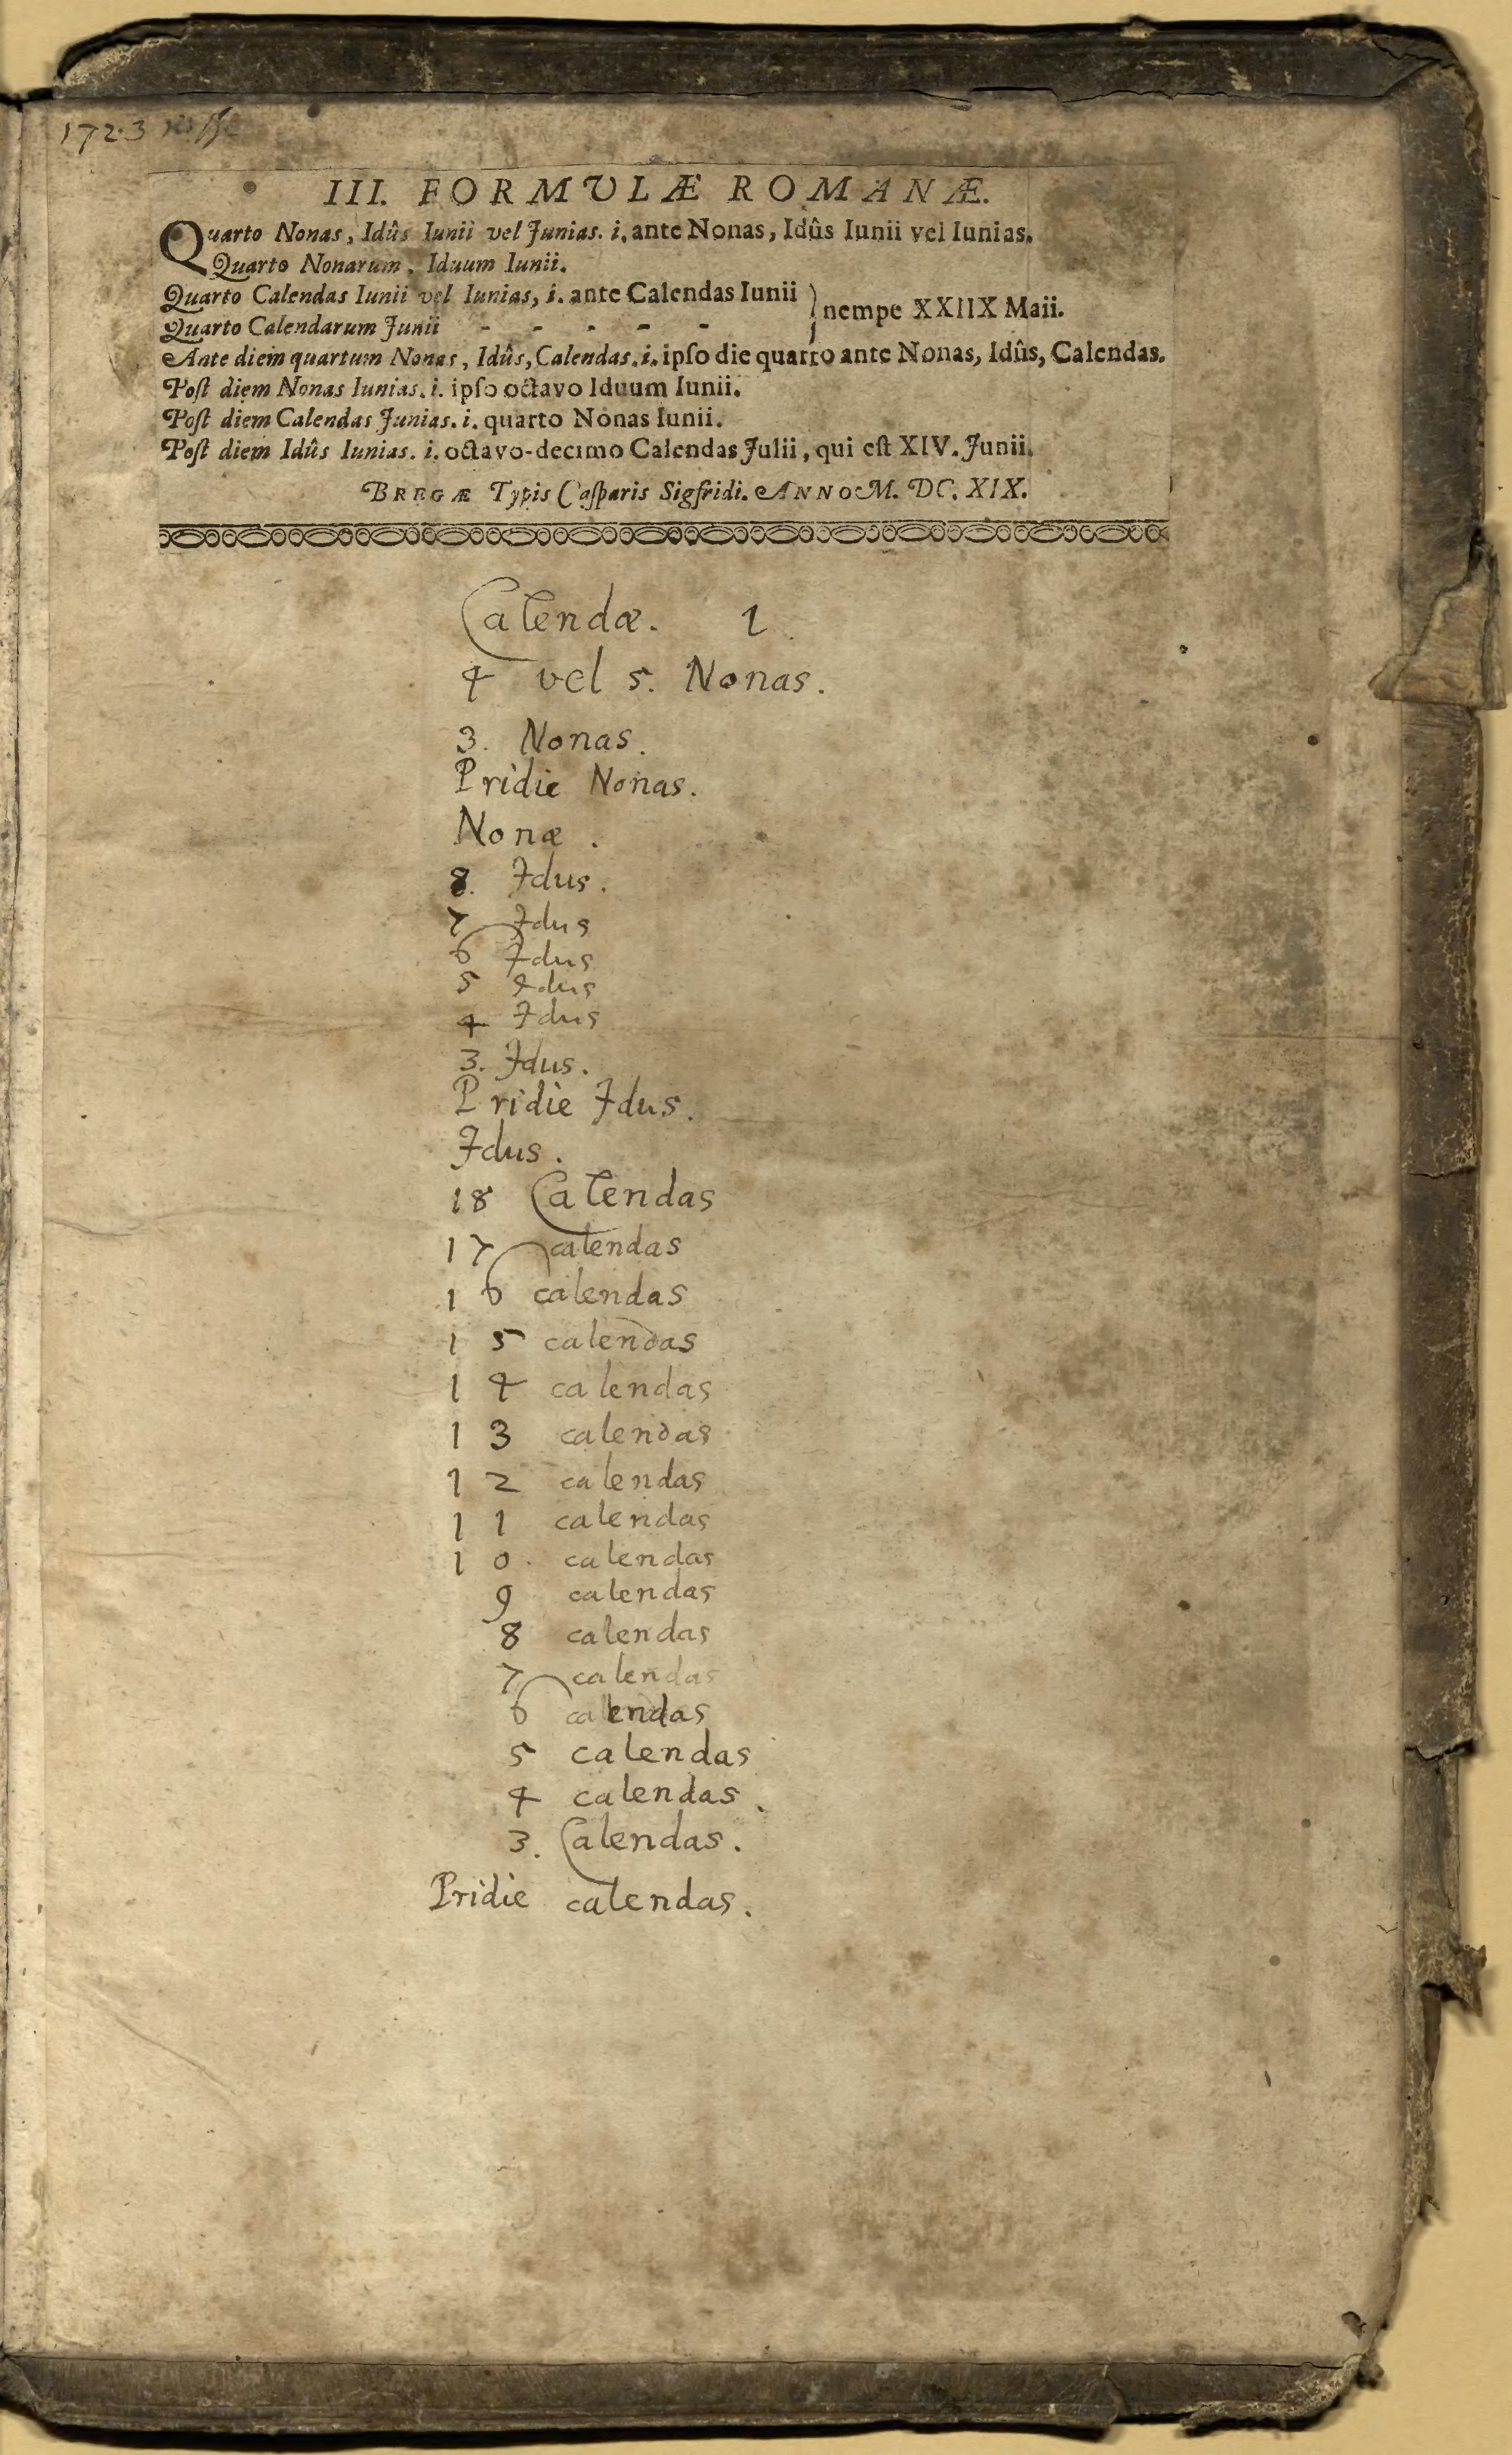 1723
III. FORMVLÆ ROMANÆ.
Quarto Nonas, Idûs Iunii vel Junias. i. ante Nonas, Idûs Iunii vel Iunias.
Quarto Nonarum, Iduum Iunii.
Quarto Calendas Iunii vel Iunias, i. ante Calendas Iunii
nempe XXIIX Maii.
Quarto Calendarum Junii - - - - -
Ante diem quartum Nonas, Idûs, Calendas. i. ipſo die quarto ante Nonas, Idûs, Calendas.
Poſt diem Nonas Iunias. i. ipſo octavo Iduum Iunii.
Poſt diem Calendas Junias. i. quarto Nonas Iunii.
Poſt diem Idûs Iunias. i. octavo-decimo Calendas Julii, qui eſt XIV. Junii.
BREGÆ Typis Caſparis Sigfridi. ANNO M. DC. XIX.
Calendæ. 1
4 vel 5. Nonas.
3. Nonas.
Pridie Nonas.
Nonæ.
8. Idus.
7 Idus
6 Idus
5 Idus
4 Idus
3. Idus.
Pridie Idus.
Idus.
18 Calendas
17 calendas
16 calendas
15 calendas
14 calendas
13 calendas
12 calendas
11 calendas
10. calendas
9 calendas
8 calendas
7 calendas
6 calendas
5 calendas
4 calendas.
3. Calendas.
Pridie calendas.